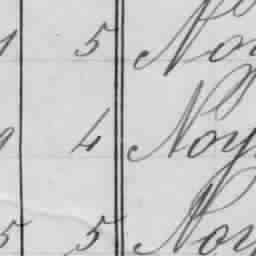 1 5 No
9 4 Noy
5 5 Noy